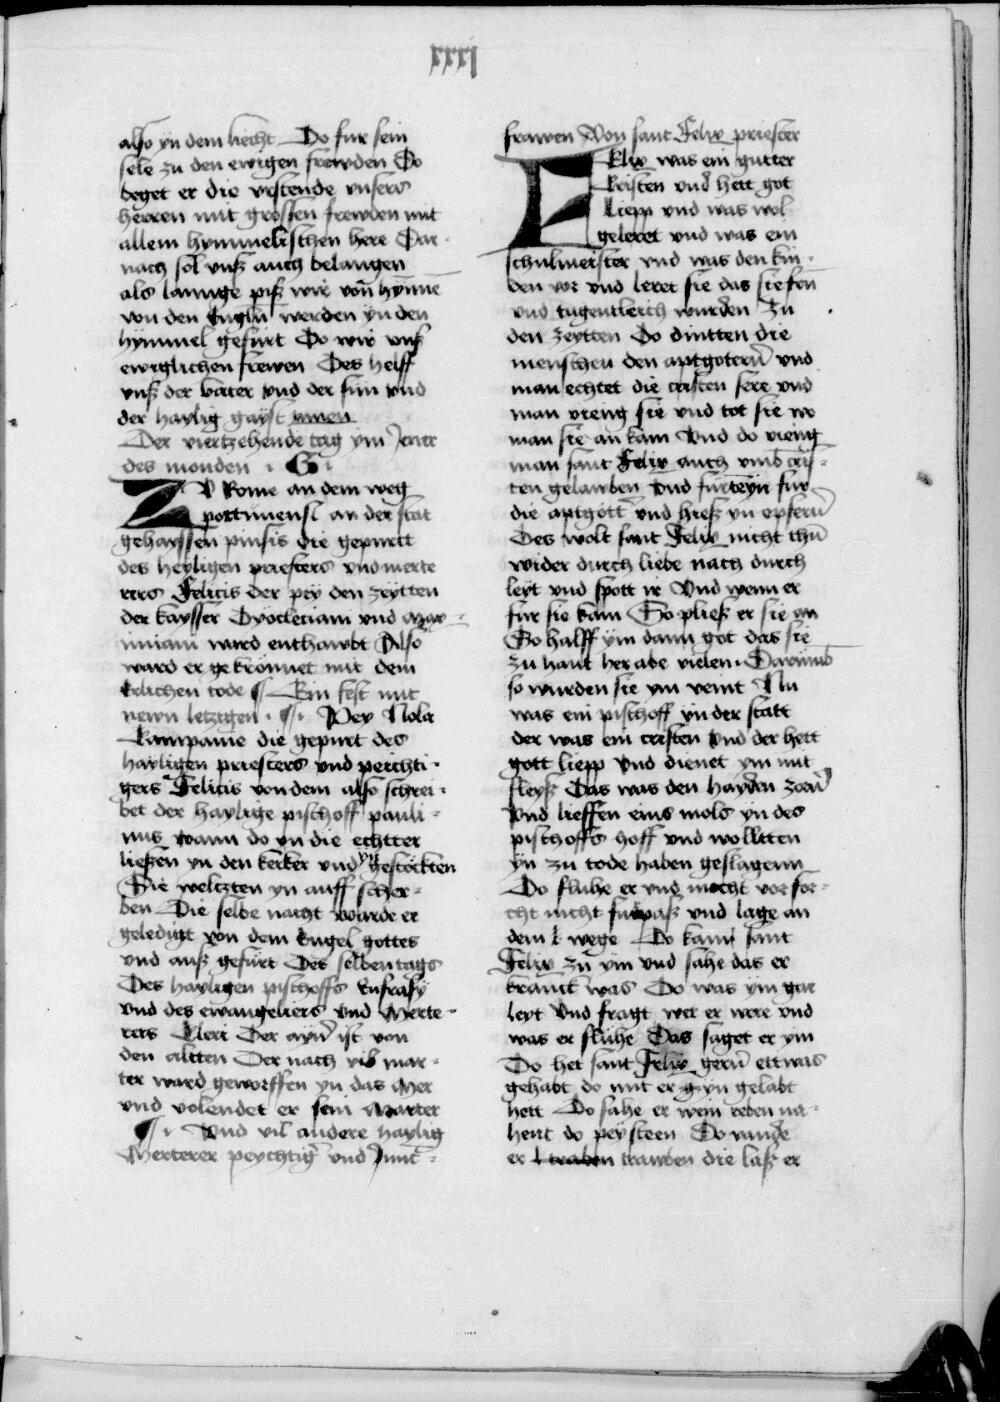 xxxj
also yn dem liecht Do fur sein
sele zu den ewigen frewden Do
beget er die vrstende vnsers
herren mit grossen frewden mit
allem hymmelischen here Dar-
nach sol vnß auch belangen
als lannge piß wir von hynne
von den Engln werden yn den
hymmel gefürt Do wir vnß
ewiglichen frewen Des helff
vnß der vater vnd der sun vnd
der haylig gayst amen
Der viertzehende tag ym Jener
des monden . G .
ZV Rome an dem weg
portuensi an der stat
gehayssen pinsis die gepurtt
des heyligen priesters vnd merte
rers Felicis der pey den zeytten
der kaysser Dyocletiani vnd Max-
imiani ward enthawbt Also
ward er gekrönnet mit dem
Erlichen tode ¶ Ein fest mit
newn letztgen . ¶ . Pey Nola
Kampanie die gepurt des
hayligen priesters vnd peichti-
gers Felicis von dem also schrei-
bet der haylige pischoff pauli-
nus wann do yn die echtter
liessen yn den kerker vnd yn gestöckten
Sie weltzten yn auff scher-
ben Die selbe nacht wurde er
geledigt von dem Engel gottes
vnd auß gefürt Des selben tags
Des hayligen pischoffs Eufrasy
vnd des ewangeliers vnd Merte-
rers Cleri Der ayn ist von
den altten Der nach vil mar-
ter ward geworffen yn das Mer
vnd volendet er sein Marter
¶ . Vnd vil andere haylig
Merterer peychtig vnd Junc-
frawen Von sant Felix priester
FElix was ein gutter
kristen vnd hett got
liepp vnd was wol
geleret vnd was ein
schulmeister vnd was den kin-
den vor vnd leret sie das sie fru
vnd tugentleich wurden Zu
den zeytten Do dintten die
menschen den aptgottern vnd
man echtet die cristen sere vnd
man vieng sie vnd tot sie wo
man sie an kam Vnd do vieng
man sant Felix auch vmb cris-
ten gelawben Vnd furt eyn fur
die aptgott vnd hieß yn opfern
Des wolt sant Felix nicht thun
wider durch liebe nach durch
leyt vnd spott ir Vnd wenn er
fur sie kam So pließ er sie an
So halff ym dann got das sie
zu hant her abe vielen . Darvmb
so wurden sie ym veint Nu
was ein pischoff yn der statt
der was ein cristen Vnd der hett
gott liepp Vnd dienet ym mit
fleyß Das was den hayden zorn
Vnd lieffen eins mols yn des
pischoffs hoff vnd wolltten
yn zu tode haben geslagenn
Do fluhe er vnd mocht vor for-
cht nicht furpaß vnd lage an
dem wege Do kam sant
Felix zu ym vnd sahe das er
kranck was Do was ym gar
leyt Vnd fragt wer er were vnd
was er fluhe Das saget er ym
Do het sant Felix gern ettwas
gehabt do mit er yn gelabt
hett Do sahe er wein reben na-
hent do pey steen Do vinde
er trawben die laß er